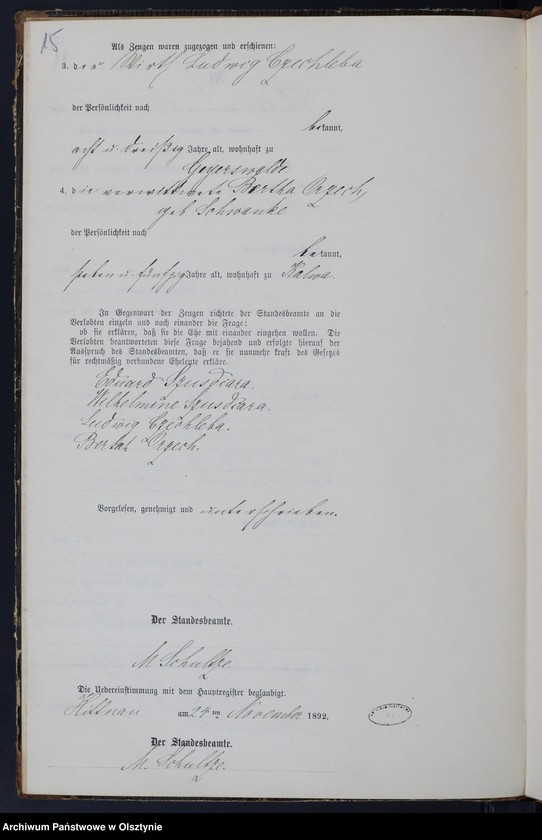 15
Als Zeugen waren zugezogen und erschienen:
3. der Wirth Ludwig Czechleba
der Persönlichkeit nach
bekannt,
acht u. dreißig Jahre alt, wohnhaft zu
Geyerswalde
4. die verwittwete Bertha Orzech,
geb Schwanke
der Persönlichkeit nach
bekannt,
sieben u. fünfzig Jahre alt, wohnhaft zu Kalwa.
In Gegenwart der Zeugen richtete der Standesbeamte an die
Verlobten einzeln und nach einander die Frage:
ob sie erklären, daß sie die Ehe mit einander eingehen wollen. Die
Verlobten beantworteten diese Frage bejahend und erfolgte hierauf der
Ausspruch des Standesbeamten, daß er sie nunmehr kraft des Gesetzes
für rechtmäßig verbundene Eheleute erkläre.
Eduard Szusdziara.
Wilhelmine Szusdziara.
Ludwig Czechleba.
Bertha Orzech.
Vorgelesen, genehmigt und unterschrieben.
Der Standesbeamte.
M Schultze.
Die Uebereinstimmung mit dem Hauptregister beglaubigt.
am 24 ten November 1892.
Der Standesbeamte.
M. Schultze.
Archiwum Państwowe w Olsztynie